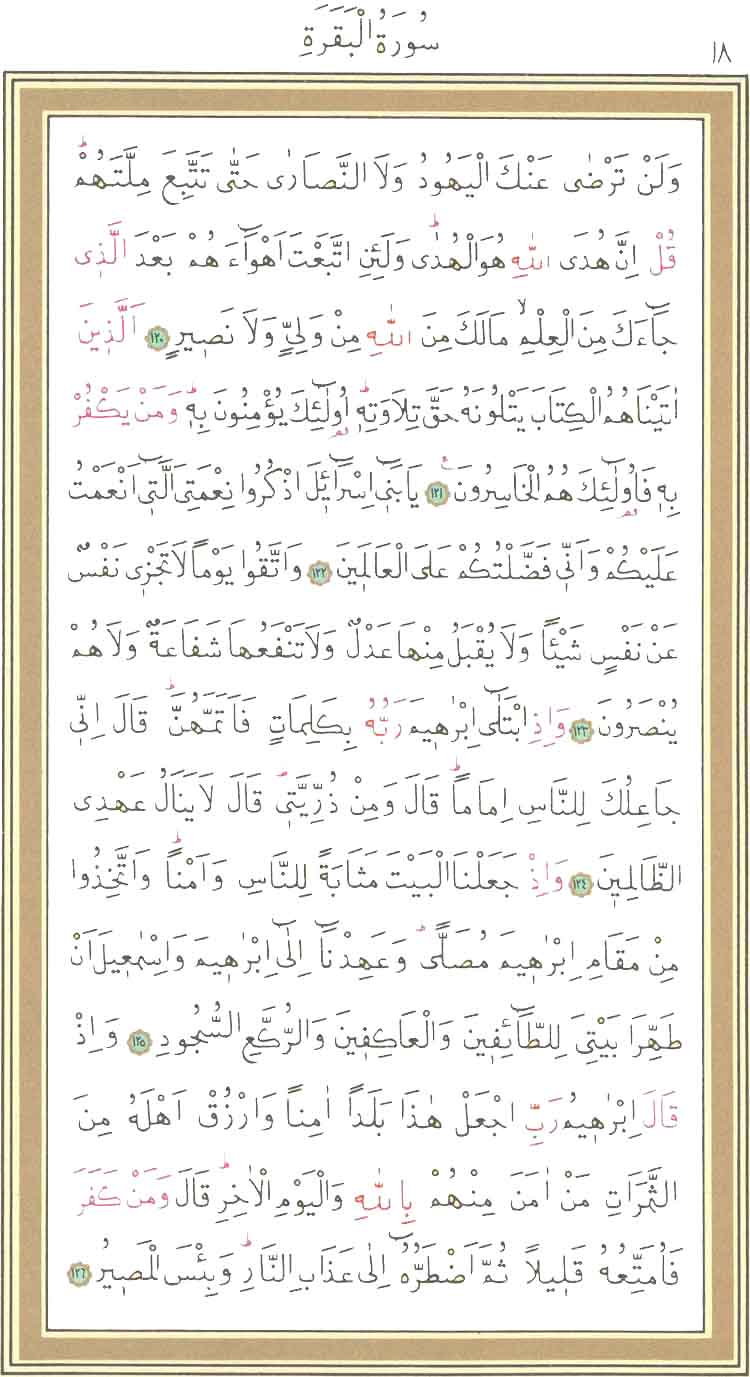 سُورَةُ الْبَقَرَةِ
١٨
وَلَنْ تَرْضٰى عَنْكَ الْيَهُودُ وَلَا النَّصَارٰى حَتّٰى تَتَّبِعَ مِلَّتَهُمْۜ
قُلْ اِنَّ هُدَى اللّٰهِ هُوَ الْهُدٰىۜ وَلَئِنِ اتَّبَعْتَ اَهْوَٓاءَهُمْ بَعْدَ الَّذ۪ي
جَٓاءَكَ مِنَ الْعِلْمِۙ مَا لَكَ مِنَ اللّٰهِ مِنْ وَلِيٍّ وَلَا نَص۪يرٍ ﴿١٢٠﴾ اَلَّذ۪ينَ
اٰتَيْنَاهُمُ الْكِتَابَ يَتْلُونَهُ حَقَّ تِلَاوَتِه۪ۜ اُو۬لٰٓئِكَ يُؤْمِنُونَ بِه۪ۜ وَمَنْ يَكْفُرْ
بِه۪ فَاُو۬لٰٓئِكَ هُمُ الْخَاسِرُونَ۟ ﴿١٢١﴾ يَا بَن۪ٓي اِسْرَٓاء۪يلَ اذْكُرُوا نِعْمَتِيَ الَّت۪ٓي اَنْعَمْتُ
عَلَيْكُمْ وَاَنّ۪ي فَضَّلْتُكُمْ عَلَى الْعَالَم۪ينَ ﴿١٢٢﴾ وَاتَّقُوا يَوْماً لَا تَجْز۪ي نَفْسٌ
عَنْ نَفْسٍ شَيْـٔاً وَلَا يُقْبَلُ مِنْهَا عَدْلٌ وَلَا تَنْفَعُهَا شَفَاعَةٌ وَلَا هُمْ
يُنْصَرُونَ ﴿١٢٣﴾ وَاِذِ ابْتَلٰٓى اِبْرٰه۪يمَ رَبُّهُ بِكَلِمَاتٍ فَاَتَمَّهُنَّۜ قَالَ اِنّ۪ي
جَاعِلُكَ لِلنَّاسِ اِمَاماًۜ قَالَ وَمِنْ ذُرِّيَّت۪يۜ قَالَ لَا يَنَالُ عَهْدِي
الظَّالِم۪ينَ ﴿١٢٤﴾ وَاِذْ جَعَلْنَا الْبَيْتَ مَثَابَةً لِلنَّاسِ وَاَمْناًۜ وَاتَّخِذُوا
مِنْ مَقَامِ اِبْرٰه۪يمَ مُصَلًّىۜ وَعَهِدْنَٓا اِلٰٓى اِبْرٰه۪يمَ وَاِسْمٰع۪يلَ اَنْ
طَهِّرَا بَيْتِيَ لِلطَّٓائِف۪ينَ وَالْعَاكِف۪ينَ وَالرُّكَّعِ السُّجُودِ ﴿١٢٥﴾ وَاِذْ
قَالَ اِبْرٰه۪يمُ رَبِّ اجْعَلْ هٰذَا بَلَداً اٰمِناً وَارْزُقْ اَهْلَهُ مِنَ
الثَّمَرَاتِ مَنْ اٰمَنَ مِنْهُمْ بِاللّٰهِ وَالْيَوْمِ الْاٰخِرِۜ قَالَ وَمَنْ كَفَرَ
فَاُمَتِّعُهُ قَل۪يلاً ثُمَّ اَضْطَرُّهُٓ اِلٰى عَذَابِ النَّارِۜ وَبِئْسَ الْمَص۪يرُ ﴿١٢٦﴾